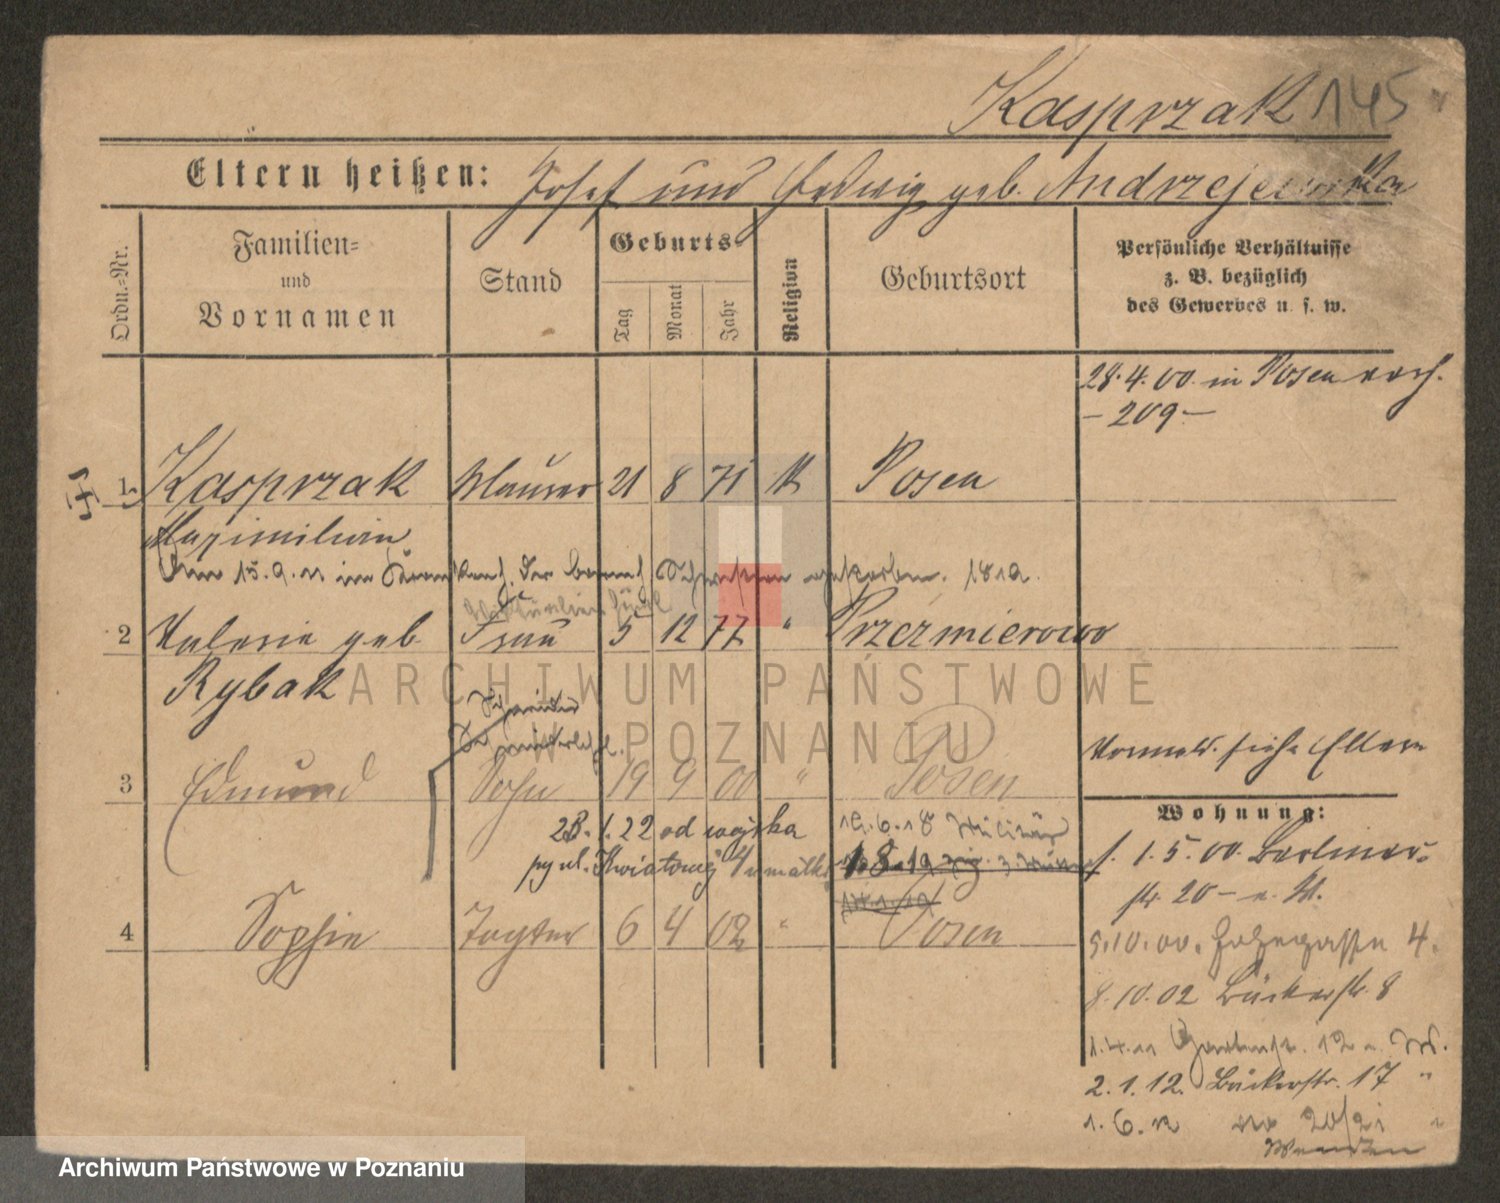 Kasprzak 145
Eltern heißen: Josef und Hedwig geb. Andrzejewska
Ordn.-Nr.
Familien- und Vornamen
Stand
Geburts-
Tag
Monat
Jahr
Religion
Geburtsort
Persönliche Verhältnisse
z. B. bezüglich
des Gewerbes u. s. w.
28.4.00 in Posen
-209-
1 Kasprzak Maurer 21 8 71 K Posen
Maximilian
Am 15.9.11 im gestorben.
2 Valerie geb Frau 5 12 77 " Przezmierowo
Rybak
Schneider
3 Edmund Sohn 19 9 00 " Posen
Vormals. siehe Eltern
28.1.22 od wojska
py ul. Kwiatowej 4 u matki
19.6.18 Militär
1.8.19
4 Sophie Tochter 6 4 02 " Posen
Wohnung:
1.5.00 Berliner-
str 20 -
5.10.00. 4.
8.10.02 Bäckerstr. 8
1.4.11 Gartenstr. 12
2.1.12. Bäckerstr. 17 "
1.6.12 20/21 "
ARCHIWUM PAŃSTWOWE
W POZNANIU
Archiwum Państwowe w Poznaniu